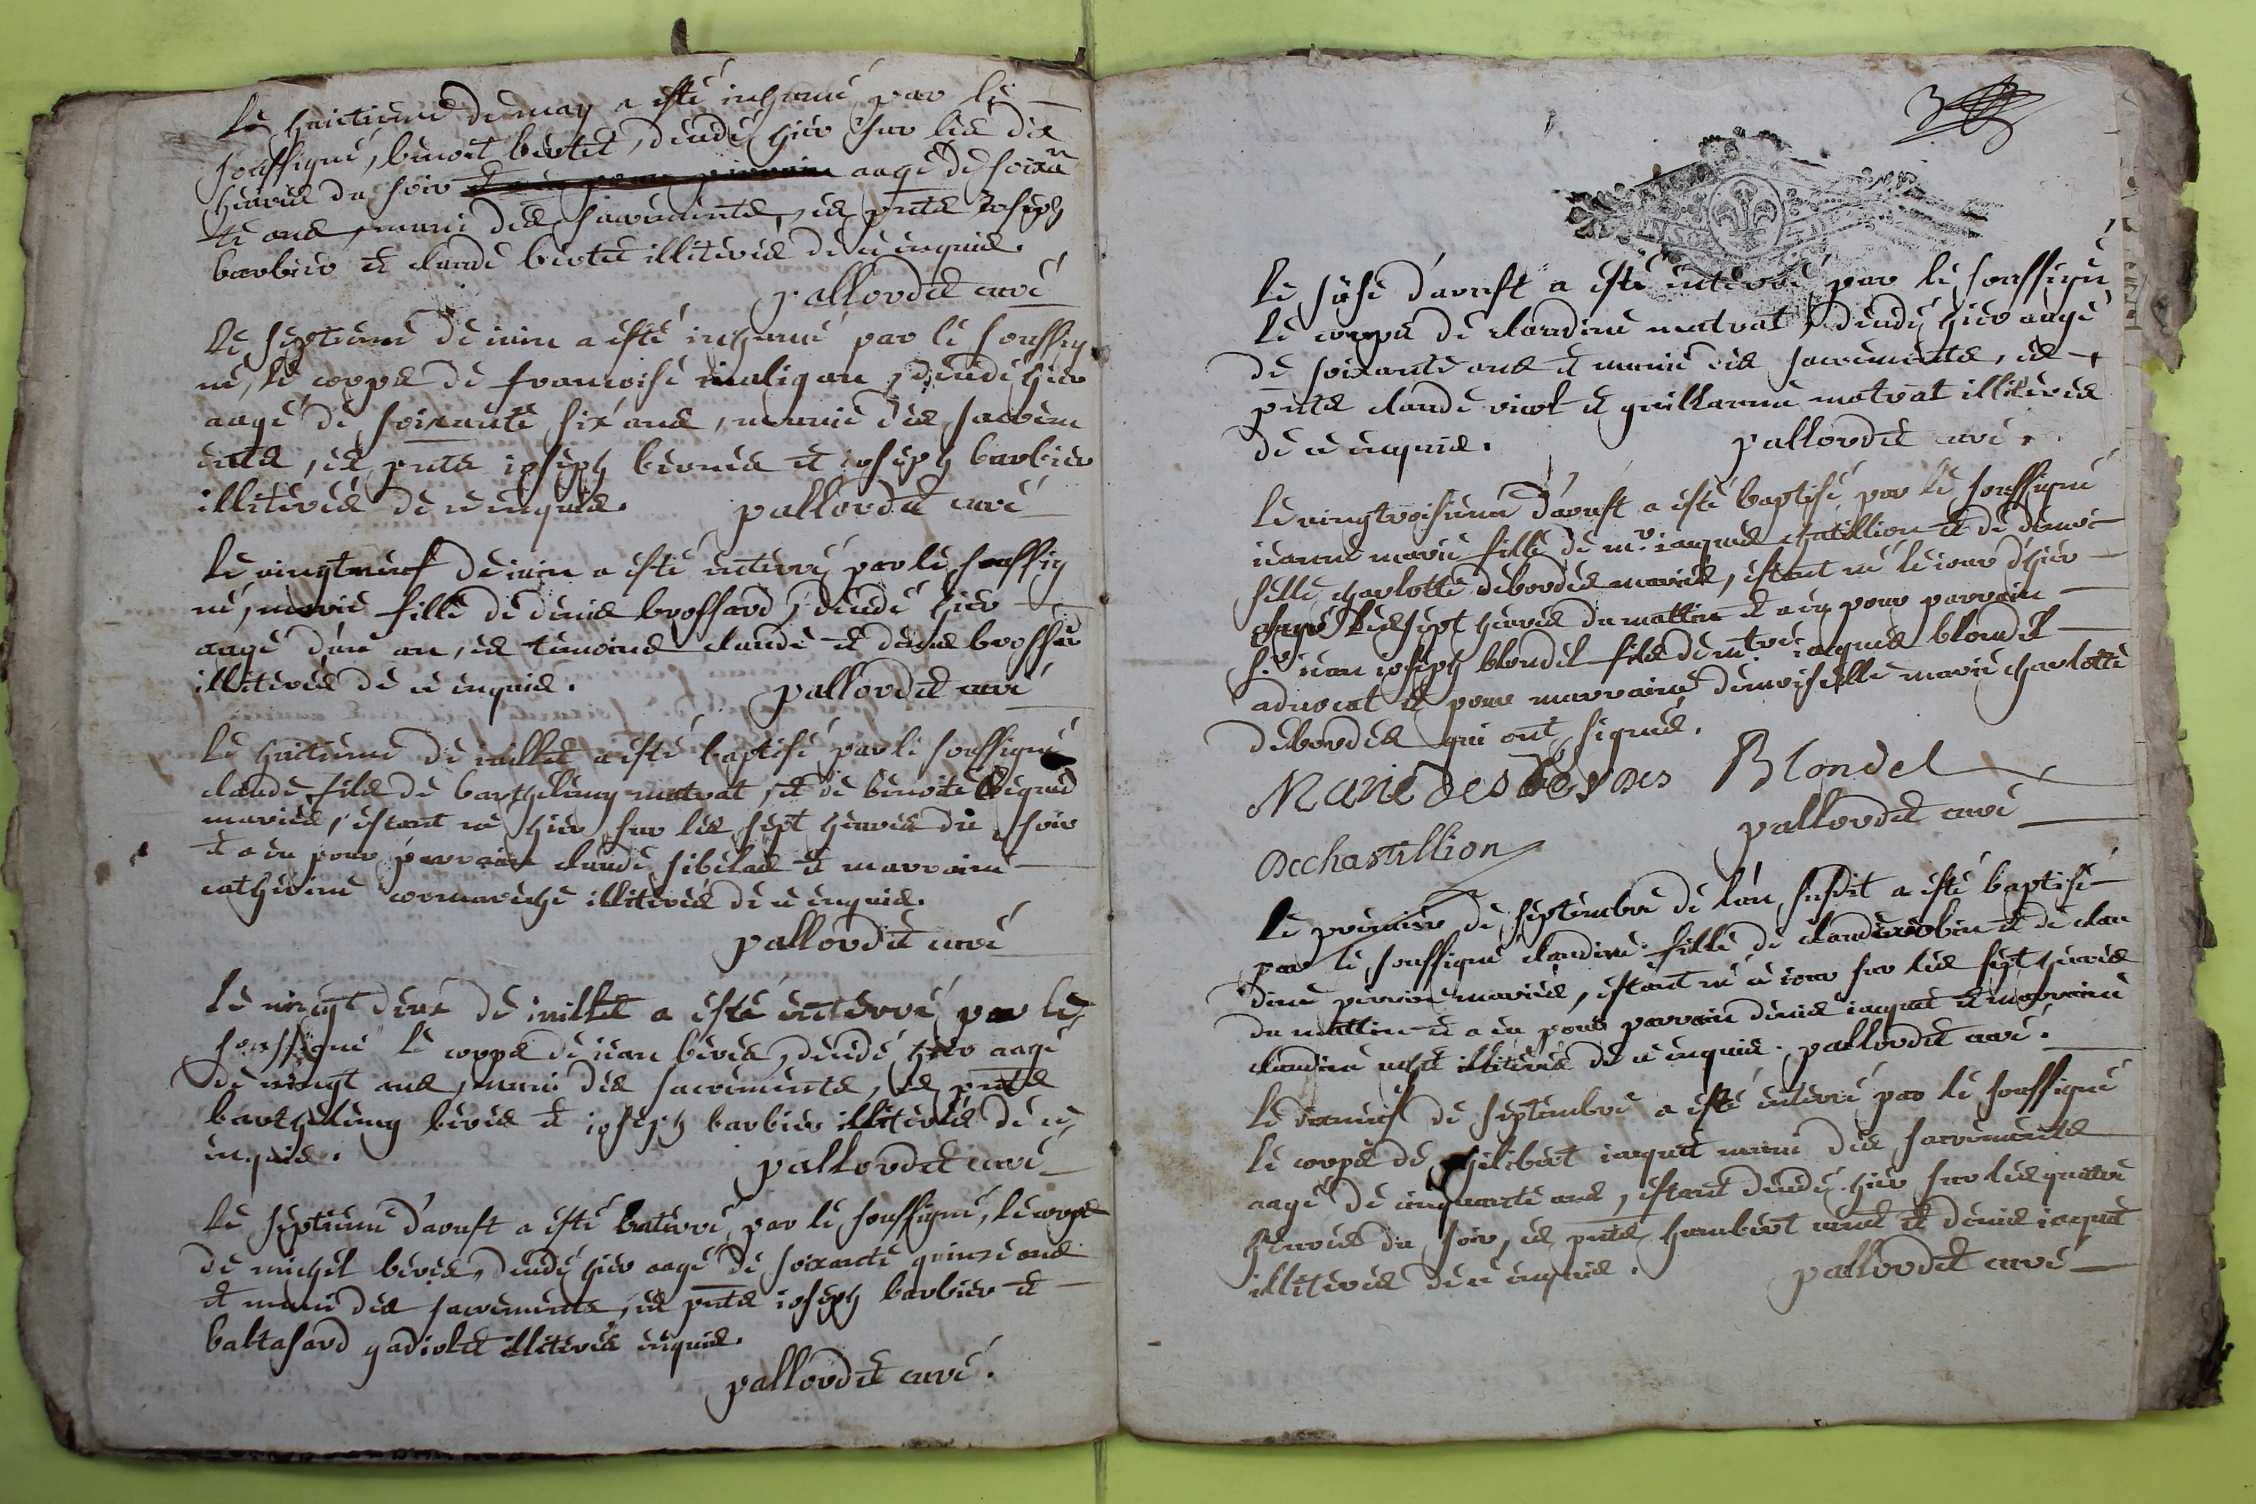 Le huictieme de may a esté inhumé par le
soussigné, benoit bertet, décédé hier sur les dix
heures du soir aagé de soixan
te ans, muni des sacrements, es pnts Joseph
barbier et claude bertet illiterés de ce enquis.
pallordet curé
Le septieme de iuin a esté inhumé par le soussig
né, le corps de francoise maligan, décédé hier
aagé de soixante six ans, munie des sacrem
ents, es pnts ioseph berres et ioseph barbier
illiterés de ce enquis. pallordet curé
Le vingtneuf de iuin a esté enterré par le soussig
né, marie fille de denis brossard, décédé hier
aagé d'un an, es temoins claude et denis brossar
illiterés de ce enquis. pallordet curé
Le huictieme de iuillet a esté baptisé par le soussigné
claude fils de barthelemy matrat, et de benoite
mariés, estant né hier sur les sept heures du soir
et a eu pour parrain claude sibelas et marraine
catherine cormareche illiterés de ce enquis.
pallordet curé
Le vingt deux de iuillet a esté enterré par le
soussigné le corps de iean berés, décédé hier aagé
de vingt ans, muni des sacrements, es pnts
barthelemy berés et ioseph barbier illiterés de ce
enquis. pallordet curé
Le septieme d'aoust a esté enterré par le soussigné, le corps
de michel berés, décédé hier aagé de soixante quinze ans
et muni des sacrements, es pnts ioseph barbier et
baltasard gadiolet illiterés enquis.
pallordet curé.
3
Le sése d'aoust a esté enterré par le soussigné
le corps de claudine matrat, décédé hier aagé
de soixante ans et munie des sacrements, es
pnts claude viol et guillaume matrat illiterés
de ce enquis. pallordet curé.
Le vingtroisieme d'aoust a esté baptisé par le soussigné
ieanne marie fille de mr iaques chatillion et de demoi
selle charlotte debordes mariés, estant né le iour d'hier
les sept heures du mattin et a eu pour parrain
sr iean ioseph blondel fils de mtre iaques blondel
advocat et pour marraine demoiselle marie charlotte
debordes qui ont signés.
Marie desbordes Blondel
pallordet curé
Dechastillion
Le premier de septembre de l'an susdit a esté baptisé
par le soussigné claudine fille de claude robin et de clau
dine perrin mariés, estant né ce iour sur les sept heures
du mattin et a eu pour parrain denis iaquet et marraine
claudine illiterés de ce enquis. pallordet curé.
Le dixneuf de septembre a esté enterré par le soussigné
le corps de philibert iaquet muni des sacrements
aagé de cinquante ans, estant décédé hier sur les quatre
heures du soir, es pnts humbert et denis iaquet
illiterés de ce enquis. pallordet curé